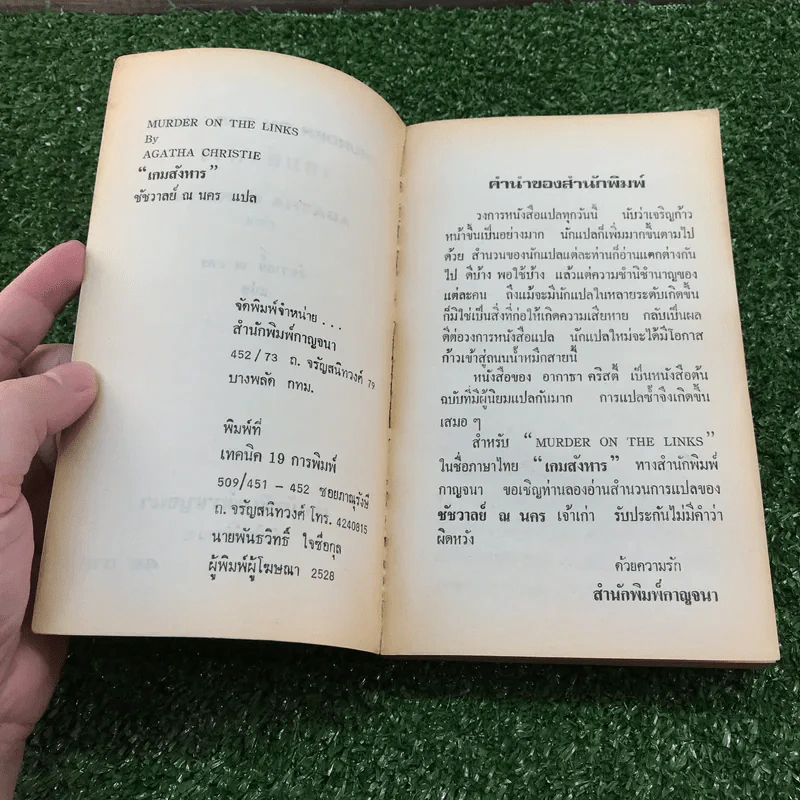 MURDER ON THE LINKS
By
AGATHA CHRISTIE
“เกมสังหาร”
ชัชวาลย์ ณ นคร แปล
จัดพิมพ์จำหน่าย ...
สำนักพิมพ์กาญจนา
452/73 ถ. จรัญสนิทวงศ์ 79
บางพลัด กทม.
พิมพ์ที่
เทคนิค 19 การพิมพ์
509/451 – 452 ซอยภาณุรังษี
ถ. จรัญสนิทวงศ์ โทร. 4240815
นายพันธวิทธิ์ ใจซื่อกุล
ผู้พิมพ์ผู้โฆษณา 2528
คำนำของสำนักพิมพ์
วงการหนังสือแปลทุกวันนี้ นับว่าเจริญก้าว
หน้าขึ้นเป็นอย่างมาก นักแปลก็เพิ่มมากขึ้นตามไป
ด้วย สำนวนของนักแปลแต่ละท่านก็อ่านแตกต่างกัน
ไป ดีบ้าง พอใช้บ้าง แล้วแต่ความชำนิชำนาญของ
แต่ละคน ถึงแม้จะมีนักแปลในหลายระดับเกิดขึ้น
ก็มิใช่เป็นสิ่งที่ก่อให้เกิดความเสียหาย กลับเป็นผล
ดีต่อวงการหนังสือแปล นักแปลใหม่จะได้มีโอกาส
ก้าวเข้าสู่ถนนน้ำหมึกสายนี้
หนังสือของ อากาธา คริสตี้ เป็นหนังสือต้น
ฉบับที่มีผู้นิยมแปลกันมาก การแปลซ้ำจึงเกิดขึ้น
เสมอ ๆ
สำหรับ “MURDER ON THE LINKS”
ในชื่อภาษาไทย “เกมสังหาร” ทางสำนักพิมพ์
กาญจนา ขอเชิญท่านลองอ่านสำนวนการแปลของ
ชัชวาลย์ ณ นคร เจ้าเก่า รับประกันไม่มีคำว่า
ผิดหวัง
ด้วยความรัก
สำนักพิมพ์กาญจนา